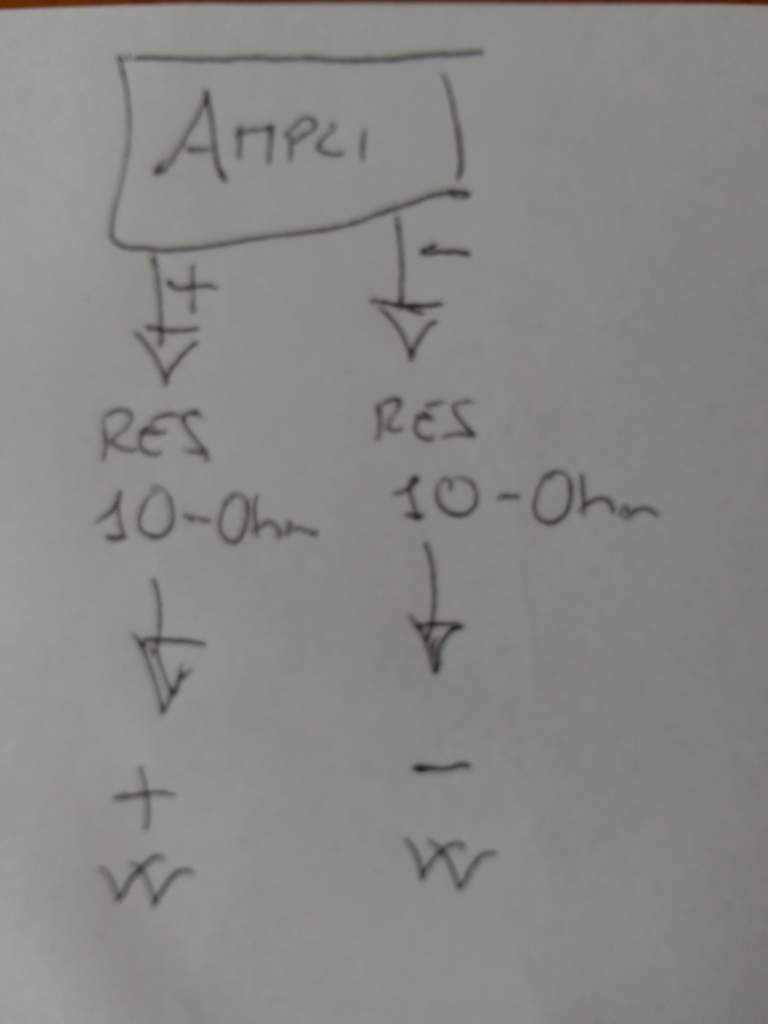 AMPLI
+ -
RES RES
10-Ohm 10-Ohm
+ -
W W